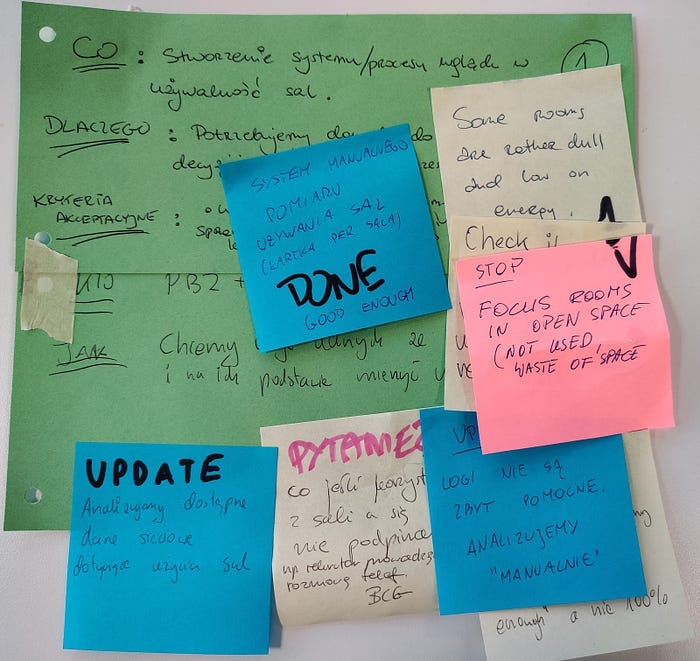 CO : Stworzenie systemu/procesu wglądu w
używalność sal.
1
DLACZEGO : Potrzebujemy do
decyzji
KRYTERIA
AKCEPTACYJNE :
KTO PBZ +
JAK Chcemy danych ze
i na ich podstawie mienyć
SYSTEM MANUALNEGO
POMIARU
UŻYWANIA SAL
(KARTKA PER SALA)
DONE
GOOD ENOUGH
Some rooms
are rather dull
and low on
energy.
Check if
STOP
FOCUS ROOMS
IN OPEN SPACE
(NOT USED,
WASTE OF SPACE
UPDATE
Analizujemy dostępne
dane sieciowe
dotyczące użycia sal
PYTANIE
co jeśli korzyst
z sali a się
nie podpina
np rekruter prowadzą
rozmowę telef.
BCG
UP
LOGI NIE SĄ
ZBYT POMOCNE,
ANALIZUJEMY
"MANUALNIE"
enough" a nie 100%